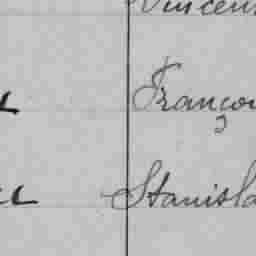 Vincen
Françoi
Stanisla